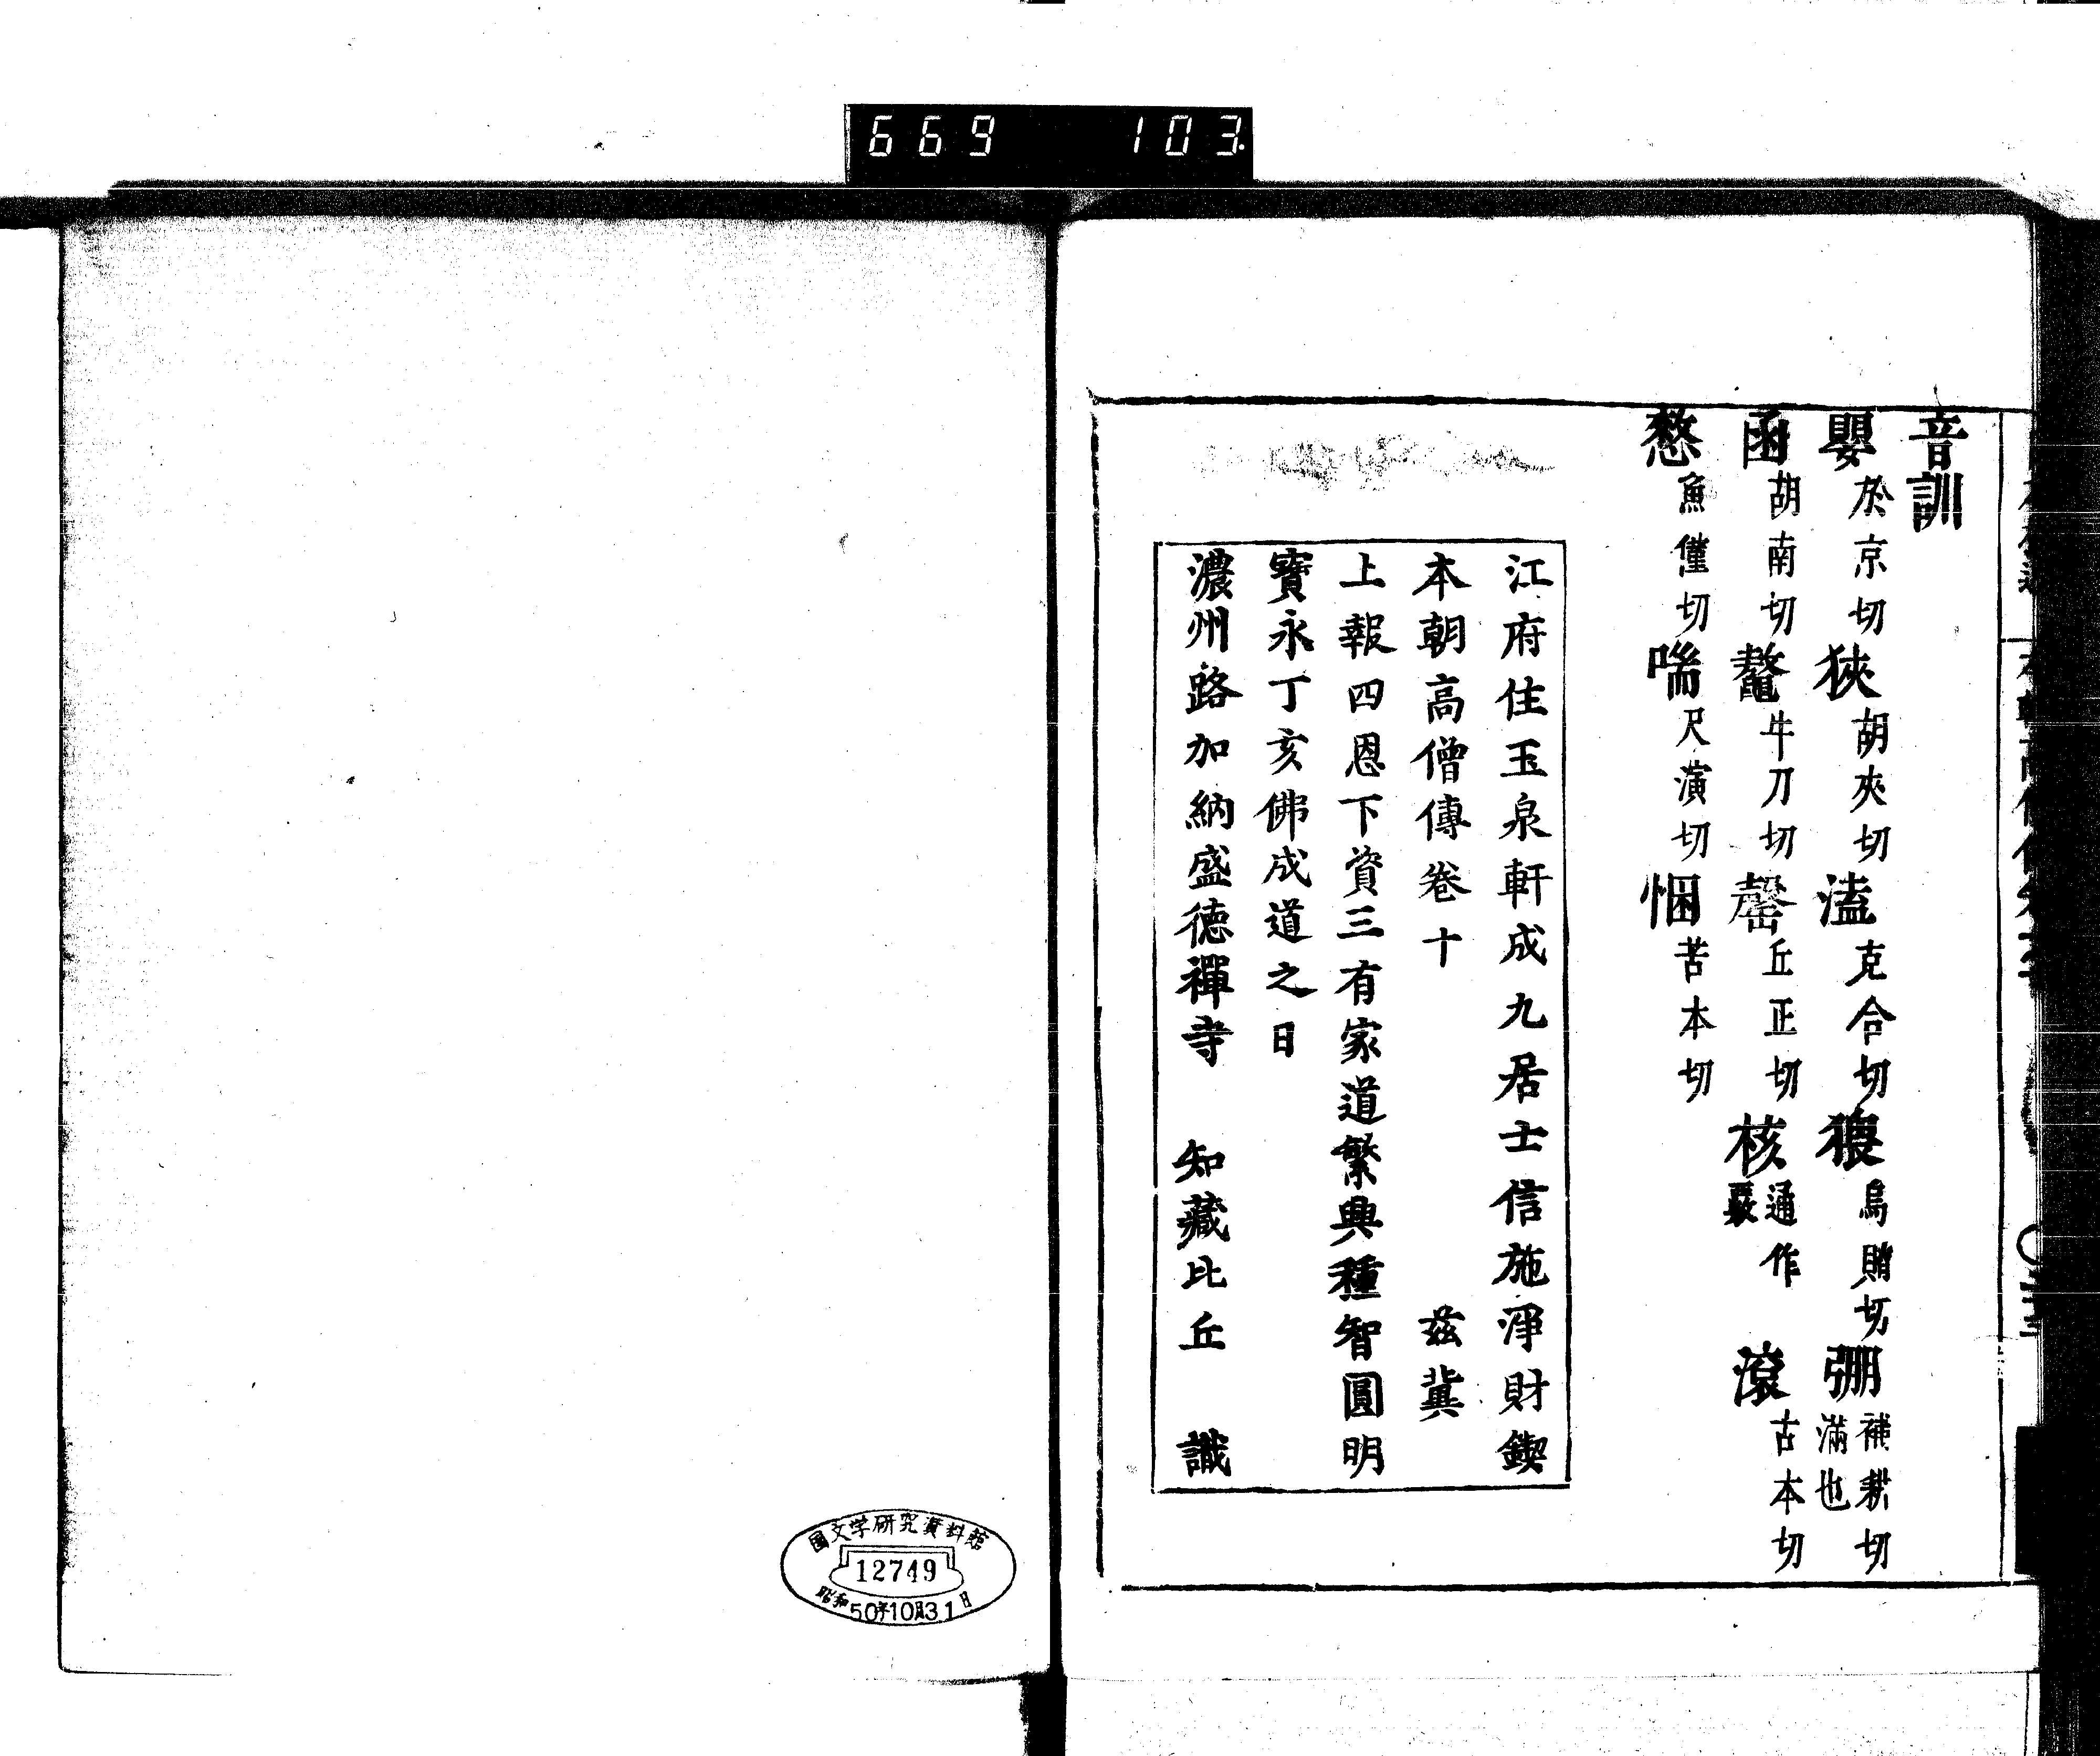 669 103
音訓
嬰於京切狹胡夾切溘克合切猥烏賄切弸補耕切滿也
函胡南切鼇牛刀切罄丘正切核通作覈滾古本切
憖魚僅切喘尺演切悃苦本切
江府住玉泉軒成九居士信施淨財鍥
本朝高僧傳卷十 茲冀
上報四恩下資三有家道繁興種智圓明
寶永丁亥佛成道之日
濃州路加納盛德禪寺 知藏比丘 識
國文学研究資料館
12749
昭和50年10月31日